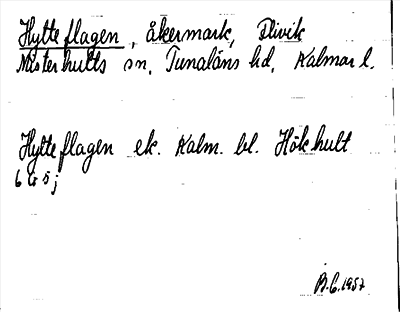 Hytteflagen, åkermark, Flivik
Misterhults sn, Tunaläns hd, Kalmar l.
Hytteflagen ek. Kalm. bl. Hökhult
6 G 5 j
B.C. 1957